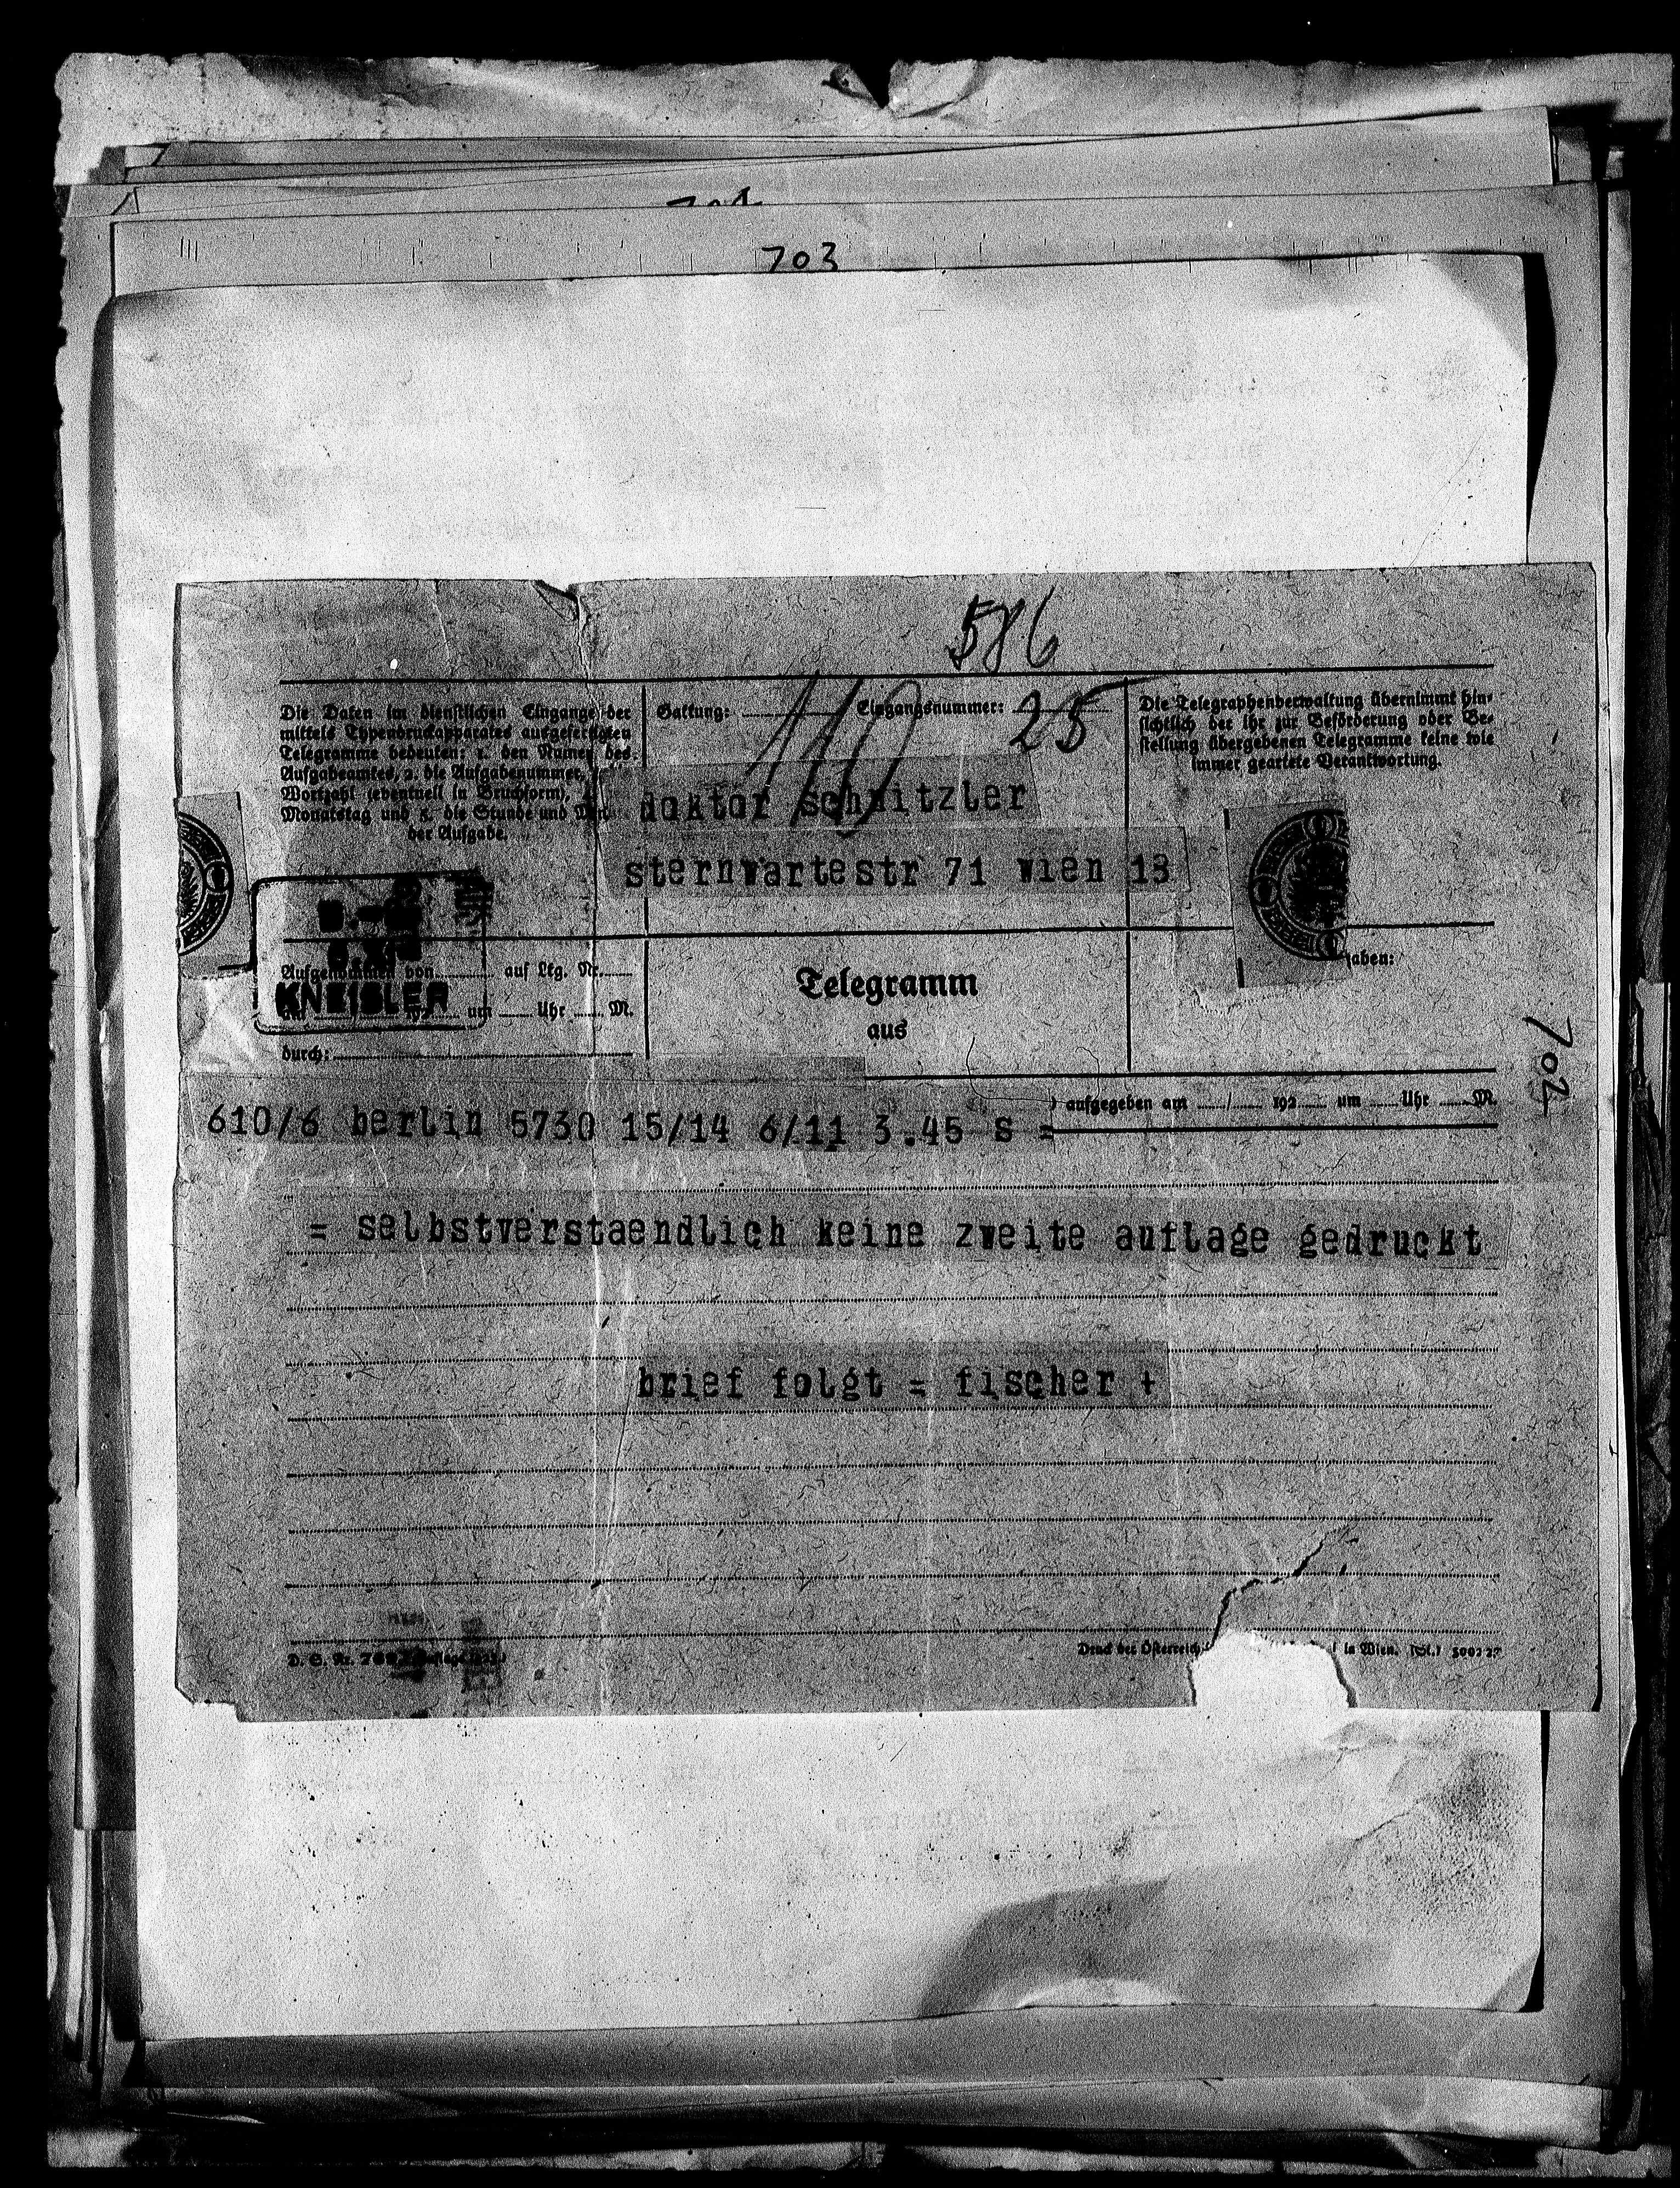 703
586
Die Daten im dienstlichen Eingange der
mittels Typendruckapparates ausgefertigten
Telegramme bedeuten: 1. den Namen des
Aufgabeamtes, 2. die Aufgabenummer,
Wortzahl (eventuell in Bruchform),
Monatstag und 5. die Stunde und
der Aufgabe.
Gattung:
Eingangsnummer: 25
110
Die Telegraphenverwaltung übernimmt hin-
sichtlich der ihr zur Beförderung oder Be-
stellung übergebenen Telegramme keine wie
immer geartete Verantwortung.
doktor schnitzler
sternwartestr 71 wien 18
Aufgenommen von auf Ltg. Nr.
KNEISLER
um Uhr M.
durch:
Telegramm
aus
aben:
702
aufgegeben am / 192 um Uhr M.
610/6 berlin 5730 15/14 6/11 3.45 s =
= selbstverstaendlich keine zweite auflage gedruckt
brief folgt = fischer +
D. S. Nr.
Druck der Österreich. in Wien.